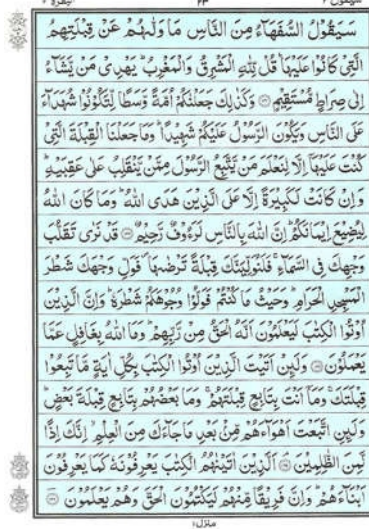 سيقول ٢ ٢٣ البقرة ٢
سَيَقُولُ السُّفَهَآءُ مِنَ النَّاسِ مَا وَلّٰىهُمْ عَنْ قِبْلَتِهِمُ
الَّتِىْ كَانُوْا عَلَيْهَا ؕ قُلْ لِّلّٰهِ الْمَشْرِقُ وَالْمَغْرِبُ ؕ يَهْدِىْ مَنْ يَّشَآءُ
اِلٰى صِرَاطٍ مُّسْتَقِيْمٍ ۝ وَكَذٰلِكَ جَعَلْنٰكُمْ اُمَّةً وَّسَطًا لِّتَكُوْنُوْا شُهَدَآءَ
عَلَى النَّاسِ وَيَكُوْنَ الرَّسُوْلُ عَلَيْكُمْ شَهِيْدًا ؕ وَمَا جَعَلْنَا الْقِبْلَةَ الَّتِىْ
كُنْتَ عَلَيْهَآ اِلَّا لِنَعْلَمَ مَنْ يَّتَّبِعُ الرَّسُوْلَ مِمَّنْ يَّنْقَلِبُ عَلٰى عَقِبَيْهِ ؕ
وَاِنْ كَانَتْ لَكَبِيْرَةً اِلَّا عَلَى الَّذِيْنَ هَدَى اللّٰهُ ؕ وَمَا كَانَ اللّٰهُ
لِيُضِيْعَ اِيْمَانَكُمْ ؕ اِنَّ اللّٰهَ بِالنَّاسِ لَرَءُوْفٌ رَّحِيْمٌ ۝ قَدْ نَرٰى تَقَلُّبَ
وَجْهِكَ فِى السَّمَآءِ ۚ فَلَنُوَلِّيَنَّكَ قِبْلَةً تَرْضٰىهَا ۪ فَوَلِّ وَجْهَكَ شَطْرَ
الْمَسْجِدِ الْحَرَامِ ؕ وَحَيْثُ مَا كُنْتُمْ فَوَلُّوْا وُجُوْهَكُمْ شَطْرَهٗ ؕ وَاِنَّ الَّذِيْنَ
اُوْتُوا الْكِتٰبَ لَيَعْلَمُوْنَ اَنَّهُ الْحَقُّ مِنْ رَّبِّهِمْ ؕ وَمَا اللّٰهُ بِغَافِلٍ عَمَّا
يَعْمَلُوْنَ ۝ وَلَئِنْ اَتَيْتَ الَّذِيْنَ اُوْتُوا الْكِتٰبَ بِكُلِّ اٰيَةٍ مَّا تَبِعُوْا
قِبْلَتَكَ ۚ وَمَآ اَنْتَ بِتَابِعٍ قِبْلَتَهُمْ ۚ وَمَا بَعْضُهُمْ بِتَابِعٍ قِبْلَةَ بَعْضٍ ؕ
وَلَئِنِ اتَّبَعْتَ اَهْوَآءَهُمْ مِّنْۢ بَعْدِ مَا جَآءَكَ مِنَ الْعِلْمِ ۙ اِنَّكَ اِذًا
لَّمِنَ الظّٰلِمِيْنَ ۝ اَلَّذِيْنَ اٰتَيْنٰهُمُ الْكِتٰبَ يَعْرِفُوْنَهٗ كَمَا يَعْرِفُوْنَ
اَبْنَآءَهُمْ ؕ وَاِنَّ فَرِيْقًا مِّنْهُمْ لَيَكْتُمُوْنَ الْحَقَّ وَهُمْ يَعْلَمُوْنَ ۝
منزل ١